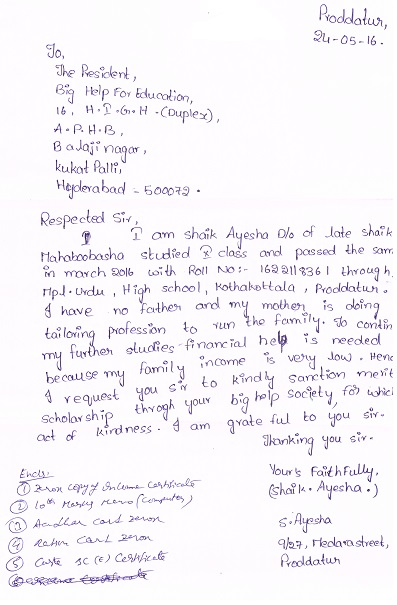 Proddatur,
24-05-16.
To,
The Resident,
Big Help For Education,
16, H.I.G.H - (Duplex),
A.P.H.B,
Balaji nagar,
kukat Palli,
Hyderabad - 500072.
Respected Sir,
I am shaik Ayesha D/o of late shaik
Mahaboobasha studied X class and passed the sam
in march 2016 with Roll No:- 1622118361 through,
Mpl. Urdu, High school, Kothakottala, Proddatur.
I have no father and my mother is doing
tailoring profession to run the family. To contin
my further studies financial help is needed
because my family income is very low. Henc
I request you sir to kindly sanction merit
scholarship throgh your big help society, for which
act of kindness. I am grate ful to you sir-
Thanking you sir-
Your's Faithfully,
(shaik. Ayesha.)
S. Ayesha
9/27, Medara street,
Proddatur
Encls:
① Zerox Copy of Income Certificate
② 10th Marks Memo (Computer)
③ Aadhar Card Zerox
④ Ration Card Zerox
⑤ Caste BC (E) Certificate